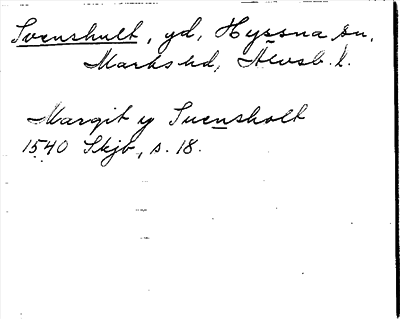 Svenshult, yd, Hyssna sn,
Marks hd, Älvsb. l.
Margit y Suensholt
1540 Skjb, s. 18.